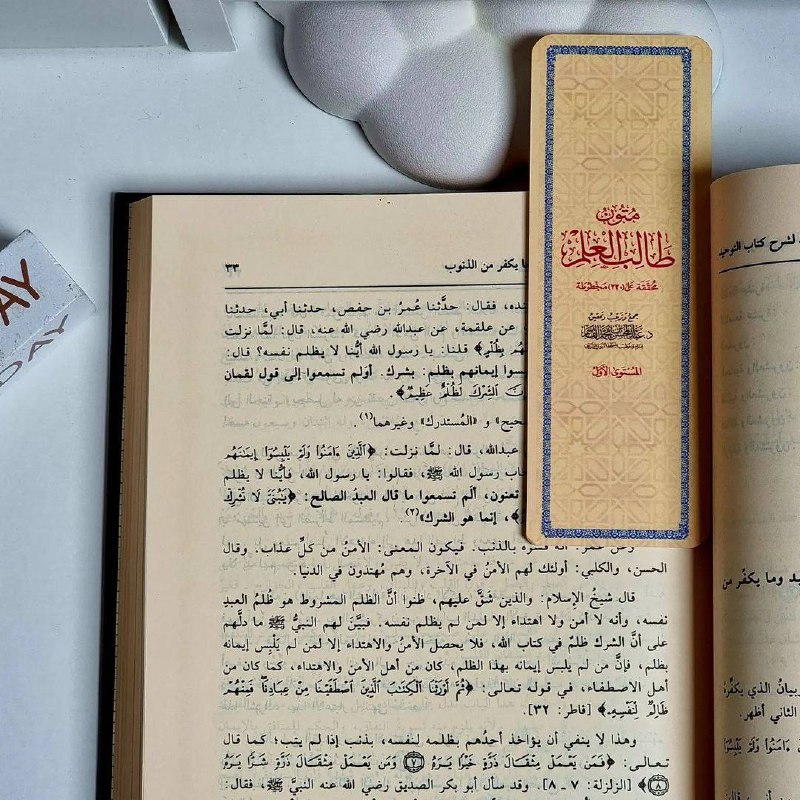 متون
طالب العلم
محققة على (٢٢٠) مخطوطة
جمع وترتيب وتحقيق
المستوى الأول
لشرح كتاب التوحيد
يد وما يكفر من
بيان الذي يكفره
الثاني أظهر.
ما يكفر من الذنوب
٣٣
فقال: حدَّثنا عُمرُ بن حفص، حدثنا أبي، حدثنا
عن علقمة، عن عبدالله رضي الله عنه، قال: لمَّا نزلت
بِظُلْمٍ﴾ قلنا: يا رسول الله أيُّنا لا يظلم نفسه؟ قال:
إيمانهم بظلم: بشرك. أوَلم تسمعوا إلى قول لقمان
الشِّرْكَ لَظُلْمٌ عَظِيمٌ﴾.
و«المُستدرك» وغيرهما(١).
عبدالله، قال: لمَّا نزلت: ﴿الَّذِينَ ءَامَنُوا وَلَمْ يَلْبِسُوا إِيمَانَهُم
رسول الله ﷺ، فقالوا: يا رسول الله، فأيُّنا لا يظلم
تعنون، ألم تسمعوا ما قال العبدُ الصالح: ﴿يَبُنَيَّ لَا تُشْرِكْ
﴾، إنما هو الشرك»(٢).
وعن عمر: أنه فسَّره بالذنب. فيكون المعنى: الأمنُ من كلِّ عذاب. وقال
الحسن، والكلبي: أولئك لهم الأمنُ في الآخرة، وهم مُهتدون في الدنيا.
قال شيخُ الإسلام: والذين شقَّ عليهم، ظنوا أنَّ الظلم المشروط هو ظُلمُ العبدِ
نفسه، وأنه لا أمن ولا اهتداء إلا لمن لم يظلم نفسه. فبيَّنَ لهم النبيُّ ﷺ ما دلَّهم
على أنَّ الشرك ظلمٌ في كتاب الله، فلا يحصل الأمنُ والاهتداء إلا لمن لم يَلْبِس إيمانه
بظلم، فإنَّ من لم يلبس إيمانه بهذا الظلم، كان من أهل الأمن والاهتداء، كما كان من
أهل الاصطفاء، في قوله تعالى: ﴿ثُمَّ أَوْرَثْنَا الْكِتَابَ الَّذِينَ اصْطَفَيْنَا مِنْ عِبَادِنَا فَمِنْهُمْ
ظَالِمٌ لِّنَفْسِهِ﴾ [فاطر: ٣٢].
وهذا لا ينفي أن يؤاخذ أحدُهم بظلمه لنفسه، بذنب إذا لم يتب؛ كما قال
تعالى: ﴿فَمَن يَعْمَلْ مِثْقَالَ ذَرَّةٍ خَيْرًا يَرَهُ ۝٧ وَمَن يَعْمَلْ مِثْقَالَ ذَرَّةٍ شَرًّا يَرَهُ
۝٨﴾ [الزلزلة: ٧ ـ ٨]. وقد سأل أبو بكر الصديق رضي الله عنه النبيَّ ﷺ، فقال: